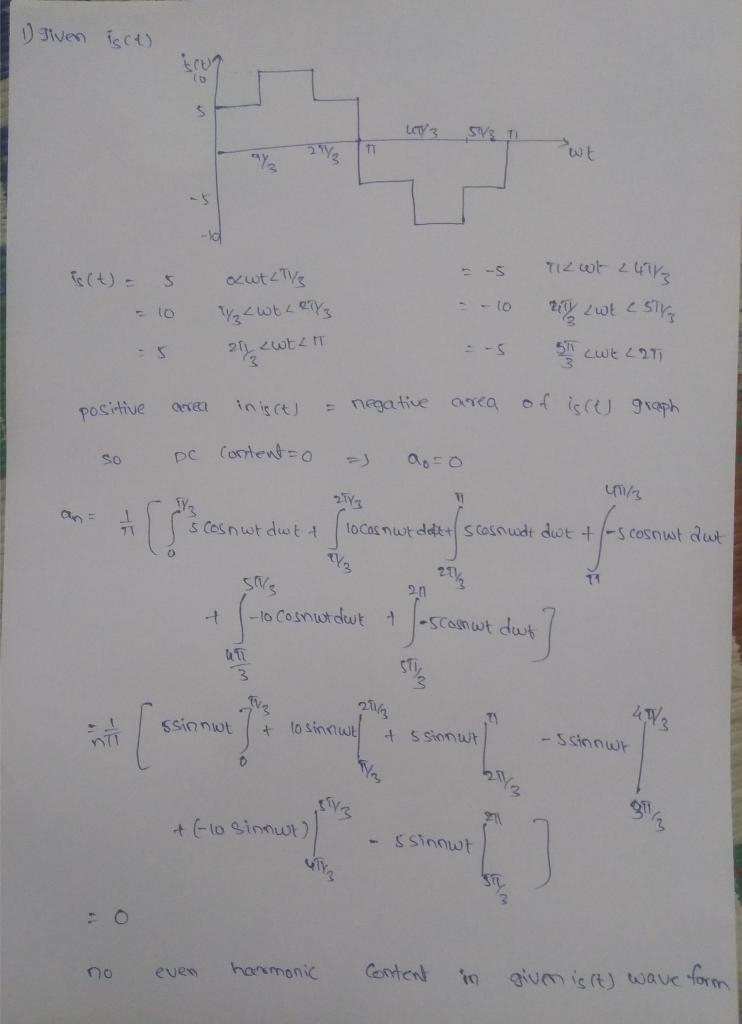 1) given is(t)
is(t)
10
5
π/3 2π/3 π 4π/3 5π/3 π
wt
-5
-10
is(t) = 5 0<wt<π/3 = -5 π<wt<4π/3
= 10 π/3<wt<2π/3 = -10 4π/3<wt<5π/3
= 5 2π/3<wt<π = -5 5π/3<wt<2π
positive area in is(t) = negative area of is(t) graph
so DC content=0 => a0=0
an = 1/π [ ∫_0^{π/3} 5 cosnwt dwt + ∫_{π/3}^{2π/3} 10cosnwt dwt + ∫_{2π/3}^{π} 5cosnwdt dwt + ∫_{π}^{4π/3} -5cosnwt dwt
+ ∫_{4π/3}^{5π/3} -10 cosnwt dwt + ∫_{5π/3}^{2π} -5cosnwt dwt ]
= 1/nπ [ 5sinnwt ]_0^{π/3} + 10sinnwt |_{π/3}^{2π/3} + 5sinnwt |_{2π/3}^{π} - 5sinnwt |_{3π/3}^{4π/3}
+ (-10 sinnwt) |_{4π/3}^{5π/3} - 5sinnwt [_{5π/3}^{2π} ]
= 0
no even harmonic content in given is(t) wave form